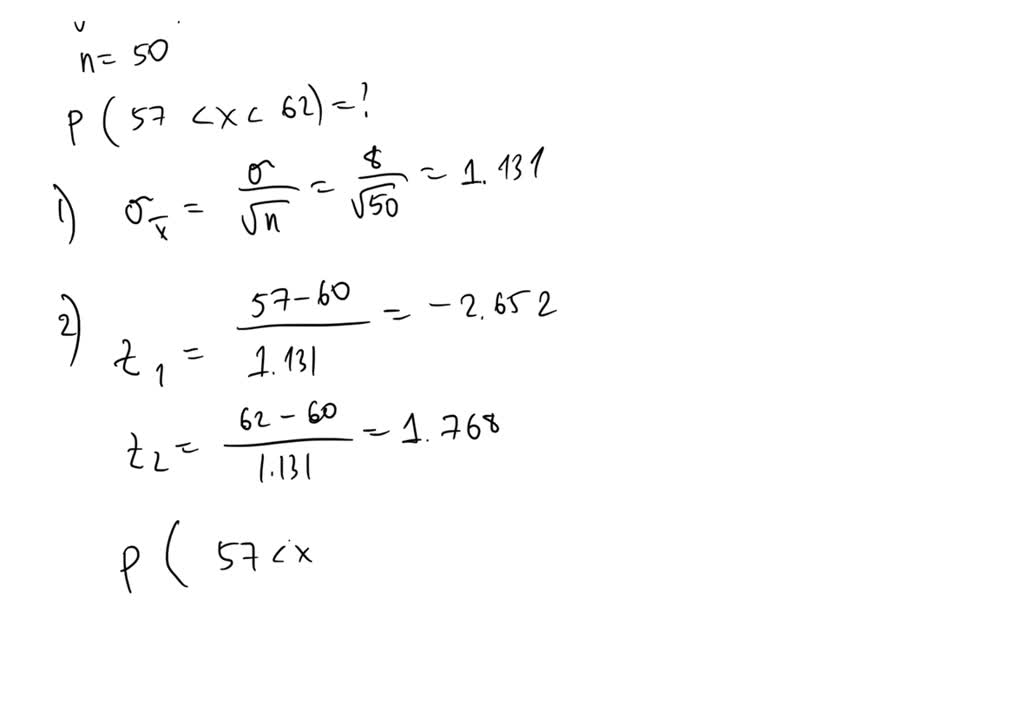 n = 50
P ( 57 < x < 62) = ?
1) σ_x̄ = σ/√n = 8/√50 = 1.131
2) z_1 = (57-60)/1.131 = -2.652
z_2 = (62-60)/1.131 = 1.768
P ( 57 < x